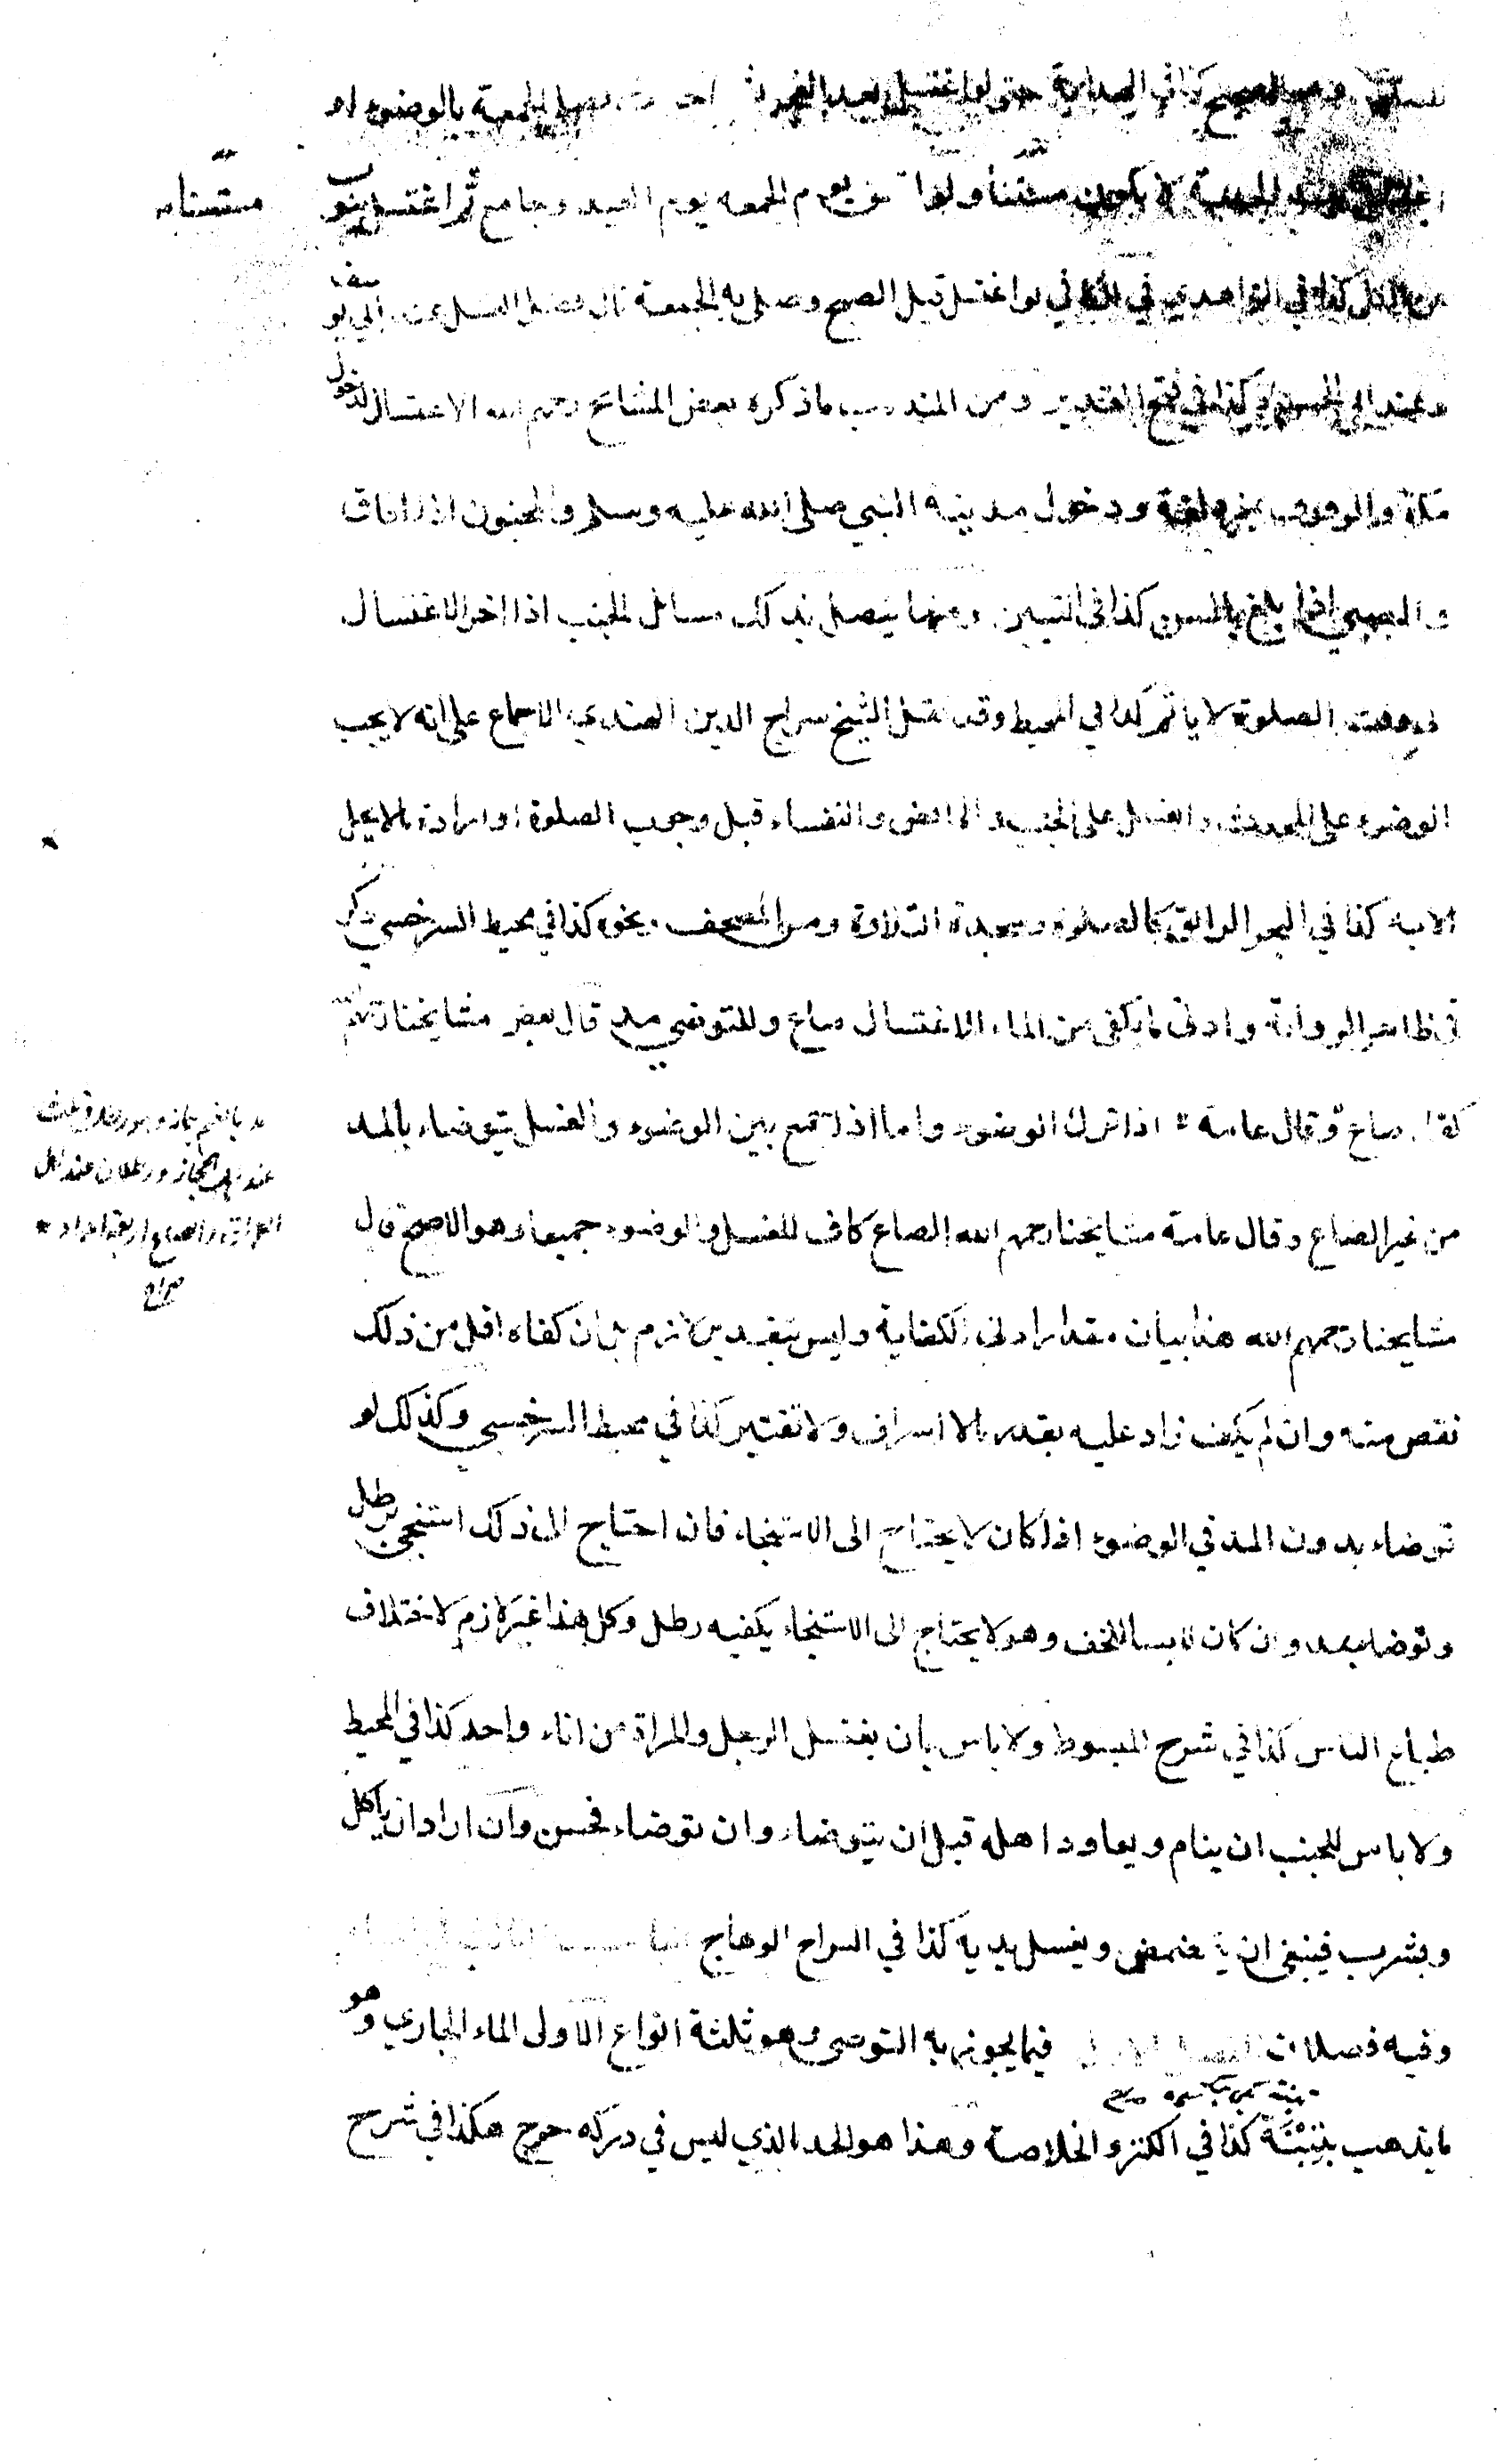 وهو الصحيح كذا في الهداية حتى لو اغتسل بعد الفجر ثم احدث وصلى الجمعة بالوضوء او
لا يكون مستنا ولو اتفق يوم الجمعه يوم العيد وجامع ثم اغتسل ينوب
مستنا
عن الكل كذا في الزاهدي في الكافي لو اغتسل قبل الصبح وصلى به الجمعة نال فضل الغسل عند ابي يوسف
وعند ابي الحسن لا كذا في فتح القدير ومن المندوب ماذكره بعض المشايخ رحمهم الله الاغتسال لدخول
مكة والوقوف بمزدلفة ودخول مدينة النبي صلى الله عليه وسلم والمجنون اذا افاق
والصبي اذا بلغ بالسن كذا في التبيين ومما يتصل بذلك مسائل الجنب اذا اخر الاغتسال
الى وقت الصلوة لا ياثم كذا في المحيط وقد نقل الشيخ سراج الدين الهندي الاجماع على انه لا يجب
الوضوء على المحدث والغسل على الجنب والحائض والنفساء قبل وجوب الصلوة او ارادة ما لا يحل
الا به كذا في البحر الرائق كالصلوة وسجدة التلاوة ومس المصحف ونحوه كذا في محيط السرخسي ذكر
في ظاهر الرواية وادنى ما يكفى من الماء للاغتسال صاع وللتوضي مد قال بعض مشايخنا رحمهم الله
كفاه صاع وقال عامة اذا ترك الوضوء واما اذا جمع بين الوضوء والغسل يتوضاء بالمد
من غير الصاع وقال عامة مشايخنا رحمهم الله الصاع كاف للغسل والوضوء جميعا وهو الاصح قال
مشايخنا رحمهم الله هذا بيان مقدار ادنى الكفاية وليس بتقدير لازم بل ان كفاه اقل من ذلك
نقص منه وان لم يكف زاد عليه بقدر ما لا اسراف ولا تقتير كذا في محيط السرخسي وكذلك لو
توضاء بدون المد في الوضوء اذا كان لا يحتاج الى الاستنجاء فان احتاج الى ذلك استنجى برطل
وتوضا بمد وان كان لابسا للخف وهو لا يحتاج الى الاستنجاء يكفيه رطل وكل هذا غير لازم لاختلاف
طباع الناس كذا في شرح المبسوط ولا باس بان يغتسل الرجل والمراة من اناء واحد كذا في المحيط
ولا باس للجنب ان ينام ويعاود اهله قبل ان يتوضاء وان توضاء فحسن وان اراد ان ياكل
ويشرب فينبغى ان يتمضمض ويغسل يديه كذا في السراج الوهاج
وفيه فصلان الفصل الاول فيما يجوز به التوضي وهو ثلثة انواع الاول الماء الجاري وهو
ما يذهب بتبنة كذا في الكنز والخلاصة وهذا هو الحد الذي ليس في دركه حرج هكذا في شرح
عند اهل الحجاز ورطلان عند اهل
العراق والصاع اربعة امداد
صراح